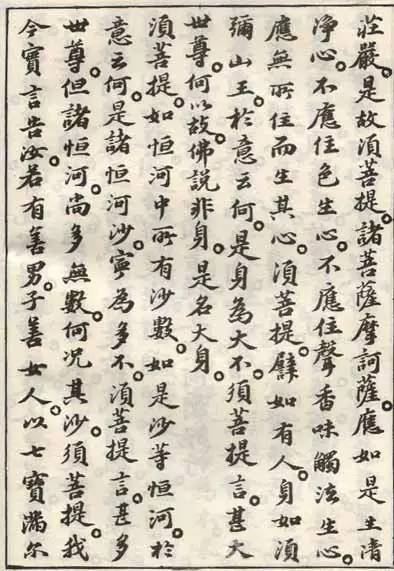 莊嚴。是故須菩提。諸菩薩摩訶薩。應如是生清
淨心。不應住色生心。不應住聲香味觸法生心。
應無所住而生其心。須菩提。譬如有人。身如須
彌山王。於意云何。是身為大不。須菩提言。甚大。
世尊。何以故。佛說非身。是名大身。
須菩提。如恒河中所有沙數。如是沙等恒河。於
意云何。是諸恒河沙。寧為多不。須菩提言。甚多。
世尊。但諸恒河尚多無數。何況其沙。須菩提。我
今實言告汝。若有善男。子善女人。以七寶滿尔